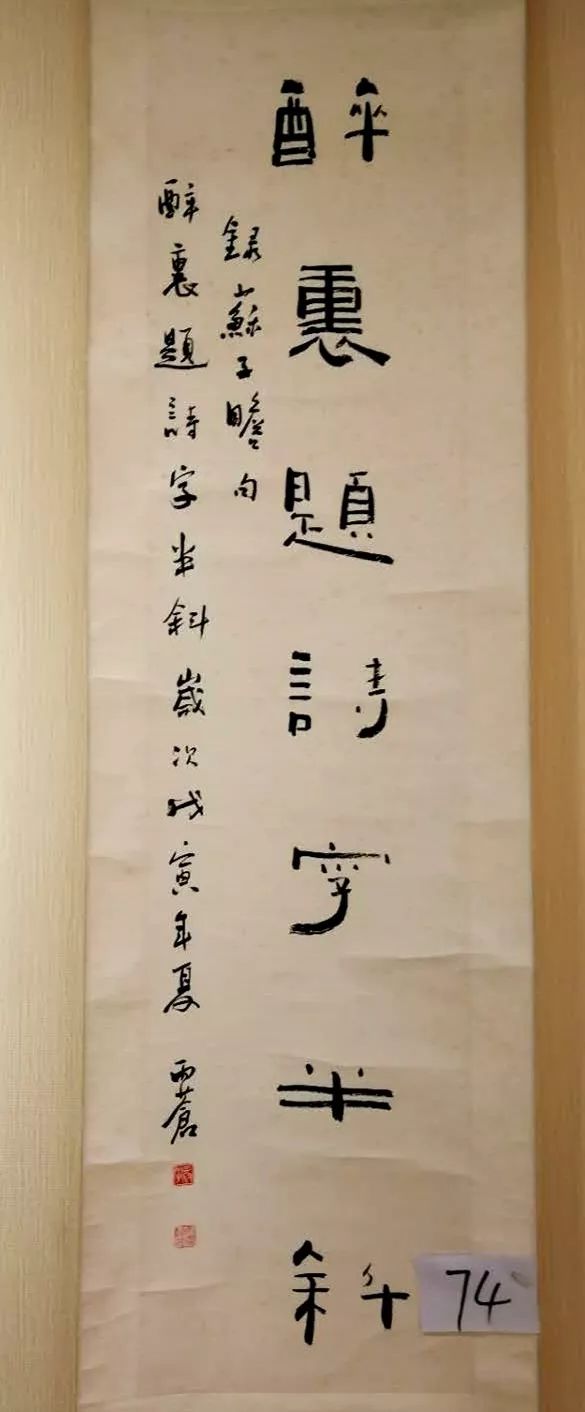 醉裏題詩字半斜
錄蘇子瞻句
醉裏題詩字半斜歲次戊寅年夏 雨蒼
74